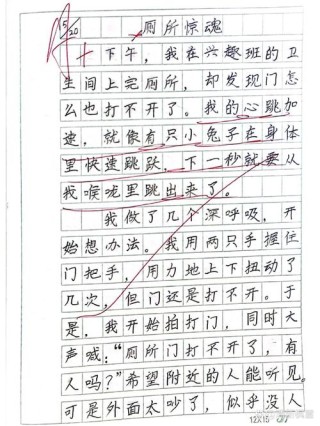 5/20
厕所惊魂
下午,我在兴趣班的卫
生间上完厕所,却发现门怎
么也打不开了。我的心跳加
速,就像有只小兔子在身体
里快速跳跃,下一秒就要从
我喉咙里跳出来了。
我做了几个深呼吸,开
始想办法。我用两只手握住
门把手,用力地上下扭动了
几次,但门还是打不开。于
是,我开始拍打门,同时大
声喊:“厕所门打不开了,有
人吗?”希望附近的人能听见。
可是外面太吵了,似乎没人
12X15